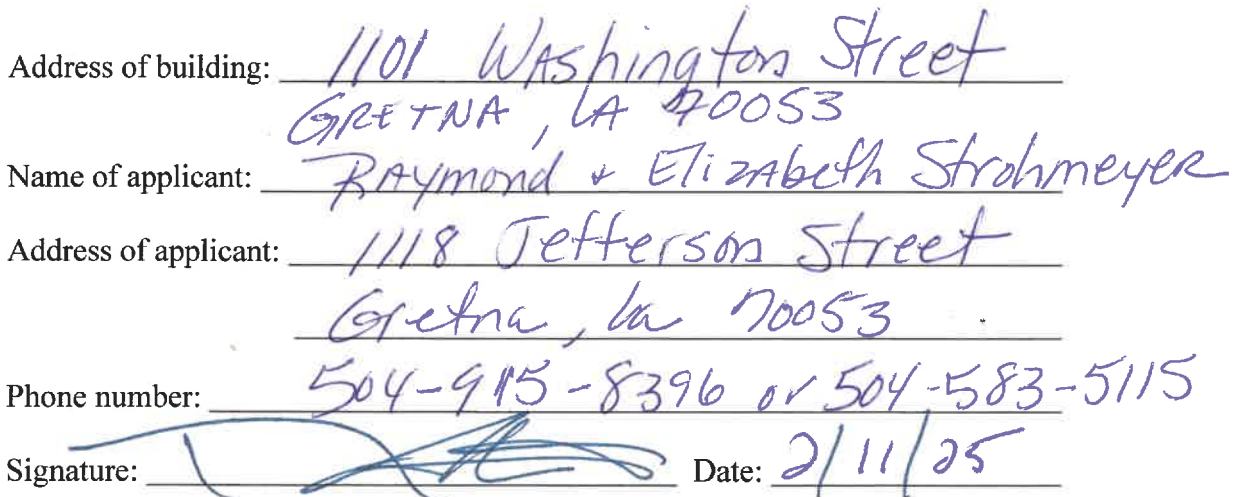 Address of building: 1101 Washington Street
GRETNA, LA 70053
Name of applicant: RAymond & ElizAbeth StrohmeyeR
Address of applicant: 1118 Jefferson Street
Gretna, La 70053
Phone number: 504-915-8396 or 504-583-5115
Signature: Date: 2/11/25